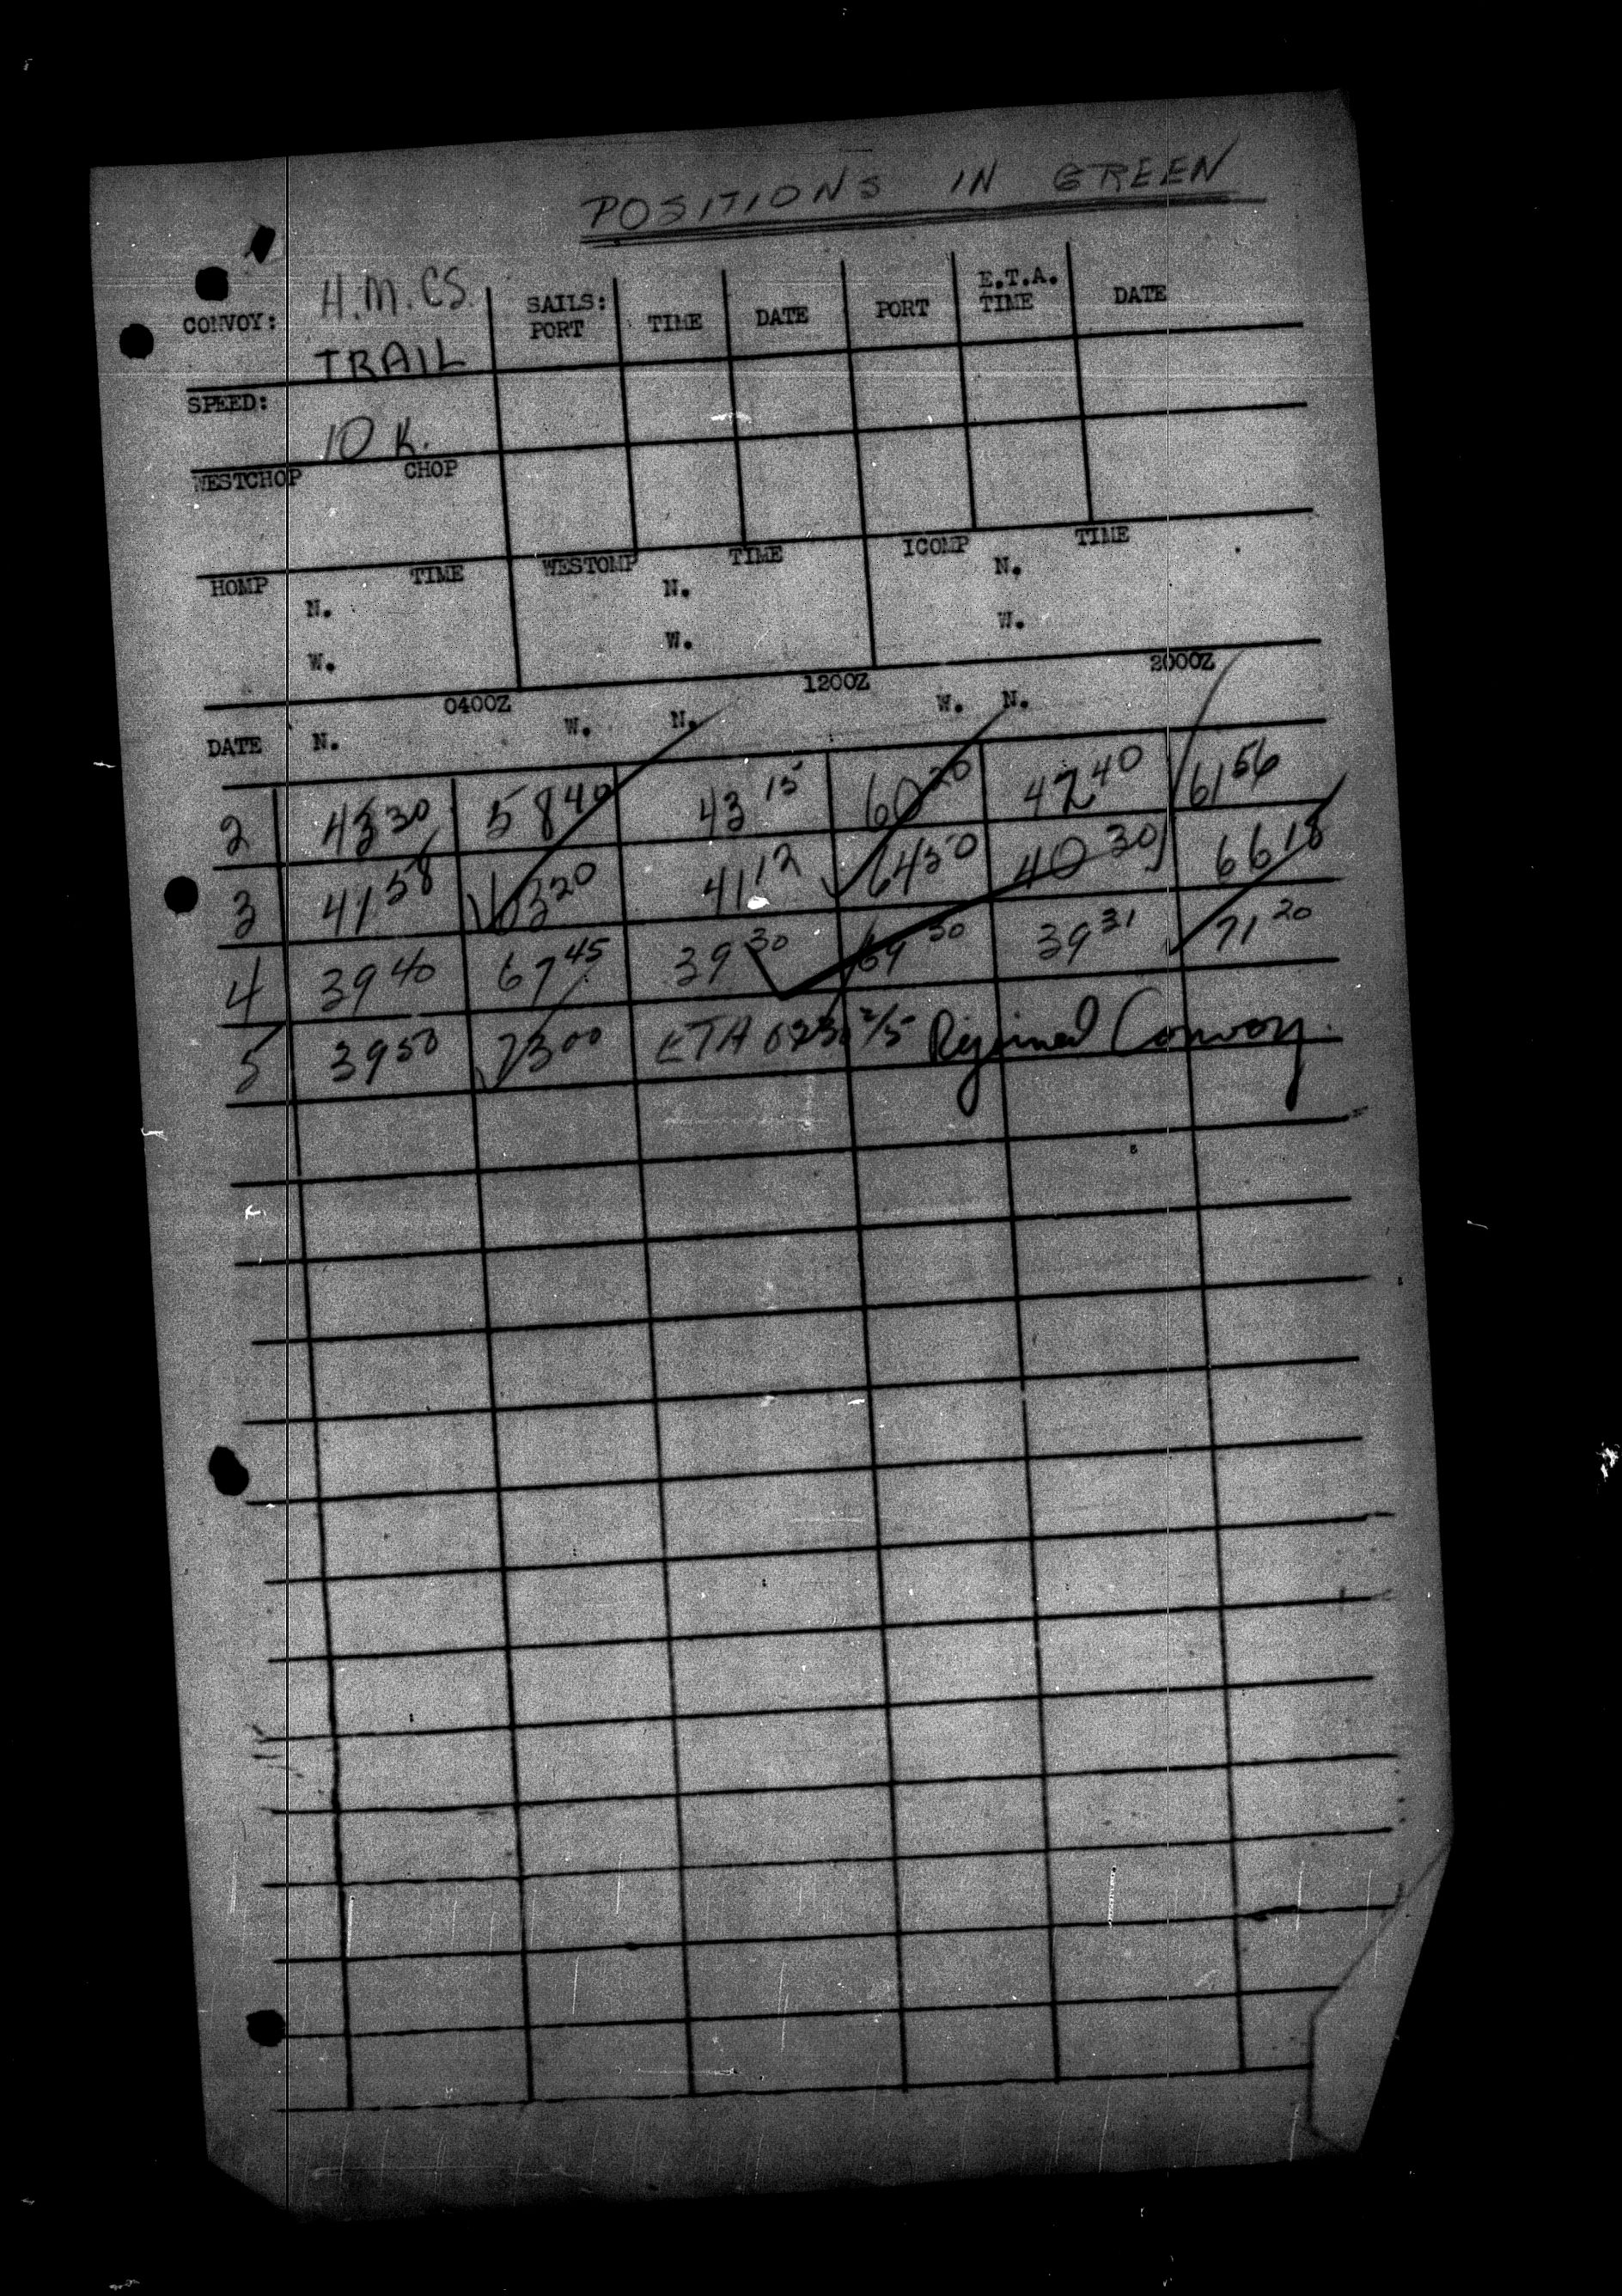 POSITIONS IN GREEN
CONVOY: H.M.CS. TRAIL SAILS: PORT TIME DATE PORT E.T.A. TIME DATE
SPEED: 10 K.
WESTCHOP CHOP
HOMP TIME WESTOMP TIME ICOMP TIME
N. N. N.
W. W. W.
0400Z 1200Z 2000Z
DATE N. W. N. W. N.
2 43 30 58 40 43 15 60 20 42 40 61 56
3 41 58 63 20 41 12 64 50 40 30 66 18
4 39 40 67 45 39 30 69 30 39 31 71 20
5 39 50 73 00 ETA Rejoined Convoy.